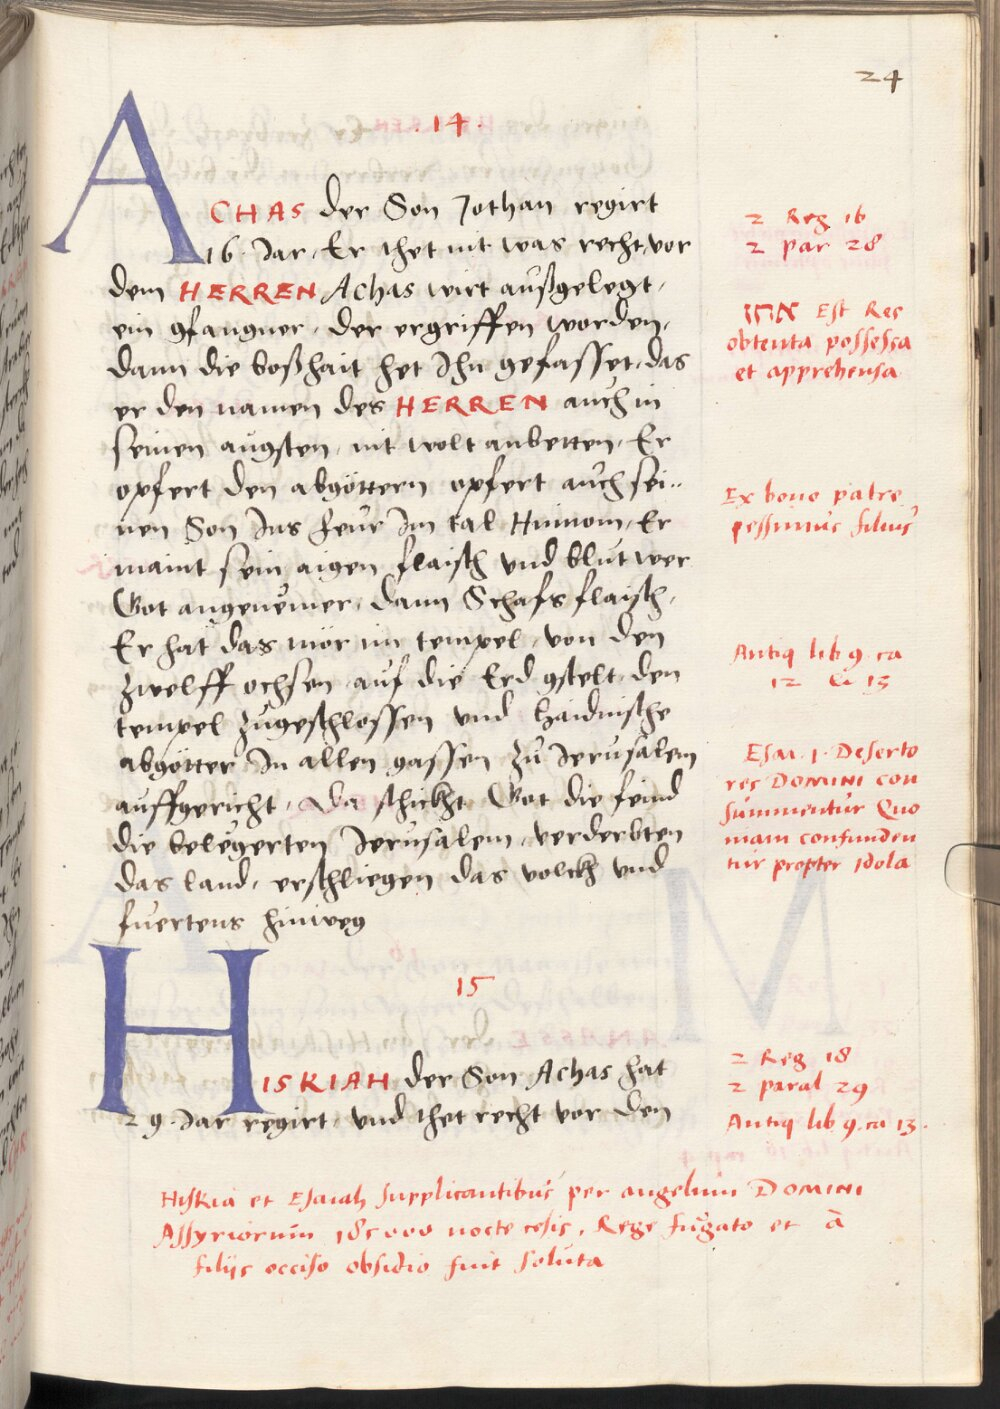 24
. 14 .
ACHAS der Son Jothan regirt
16 Jar, Er thet nit was recht vor
dem HERREN Achas wirt außgelegt,
ein gfangner, der ergriffen worden,
dann die boßhait het Ihn gefasset, das
er den namen des HERREN auch in
seinen ängsten, nit wolt anbetten, Er
opfert den abgöttern opfert auch sei¨
nen Son Ins feur Im tal Hinnom, Er
maint sein aigen flaisch und blut wer
Got angenemer, dann Schafs flaisch,
Er hat das mör im tempel, von den
zwelff ochsen auf die Erd gstelt den
tempel zugeschlossen und haidnische
abgötter In allen gassen zu Jerusalem
auffgericht, Da schickht Got die feind
die belegerten Jerusalem, verderbten
das land, erschliegen das volckh und
fuertens hinweg
2 Reg 16
2 par 28
אחז Est Res
obtenta possessa
et apprehensa
Ex bono patre
pessimus filius
Antiq lib 9 ca
12 & 13
Esai. 1. Deserto
res DOMINI con
summentur Quo
niam confunden
tur propter Idola
15
HISKIAH der Son Achas hat
29 Jar regirt, und thet recht vor den
2 Reg 18
2 paral 29
Antiq lib 9. ca 13.
Hiskia et Esaiah supplicantibus per angelum DOMINI
Assyriorum 185000 nocte cesis, Rege fugato et à
filijs occiso obsidio fuit soluta